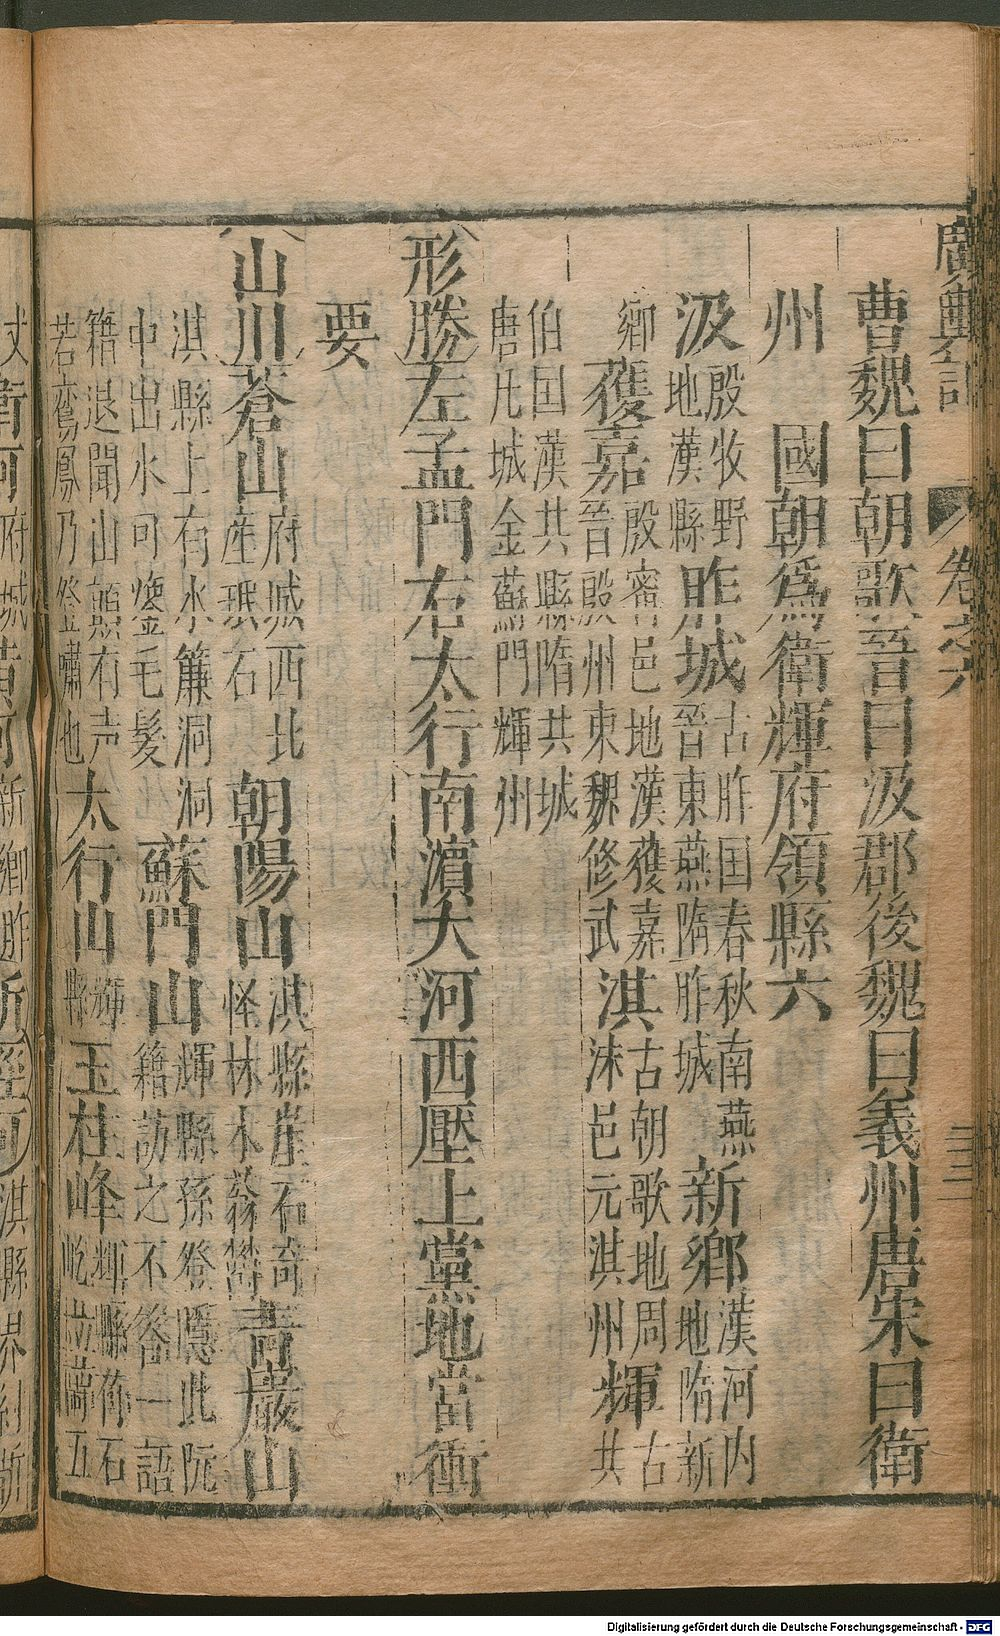 廣輿記 卷之六
曹魏曰朝歌晉曰汲郡後魏曰義州唐宋曰衛
州 國朝爲衛輝府領縣六
汲 殷牧野地漢縣 胙城 古胙国春秋南燕晉東燕隋胙城 新鄉 漢河内地隋新
鄉 獲嘉 殷甯邑地漢獲嘉晉殷州東魏修武 淇 古朝歌地周沬邑元淇州 輝 古共
伯国漢共縣隋共城唐凡城金蘇門輝州
形勝 左孟門右太行南濵大河西壓上黨地當衝
要
山川 蒼山 府城西北産珉石 朝陽山 淇縣崖石奇怪林木蓊欝 青巖山
淇縣上有水簾洞洞中出水可㷟毛髮 蘇門山 輝縣孫登隱此阮籍訪之不答一語
籍退聞山巔有声若鸞鳳乃登嘯也 太行山 輝縣 玉柱峰 輝縣
衛河 府城 黄河 新鄉胙 淇縣界
Digitalisierung gefördert durch die Deutsche Forschungsgemeinschaft - DFG